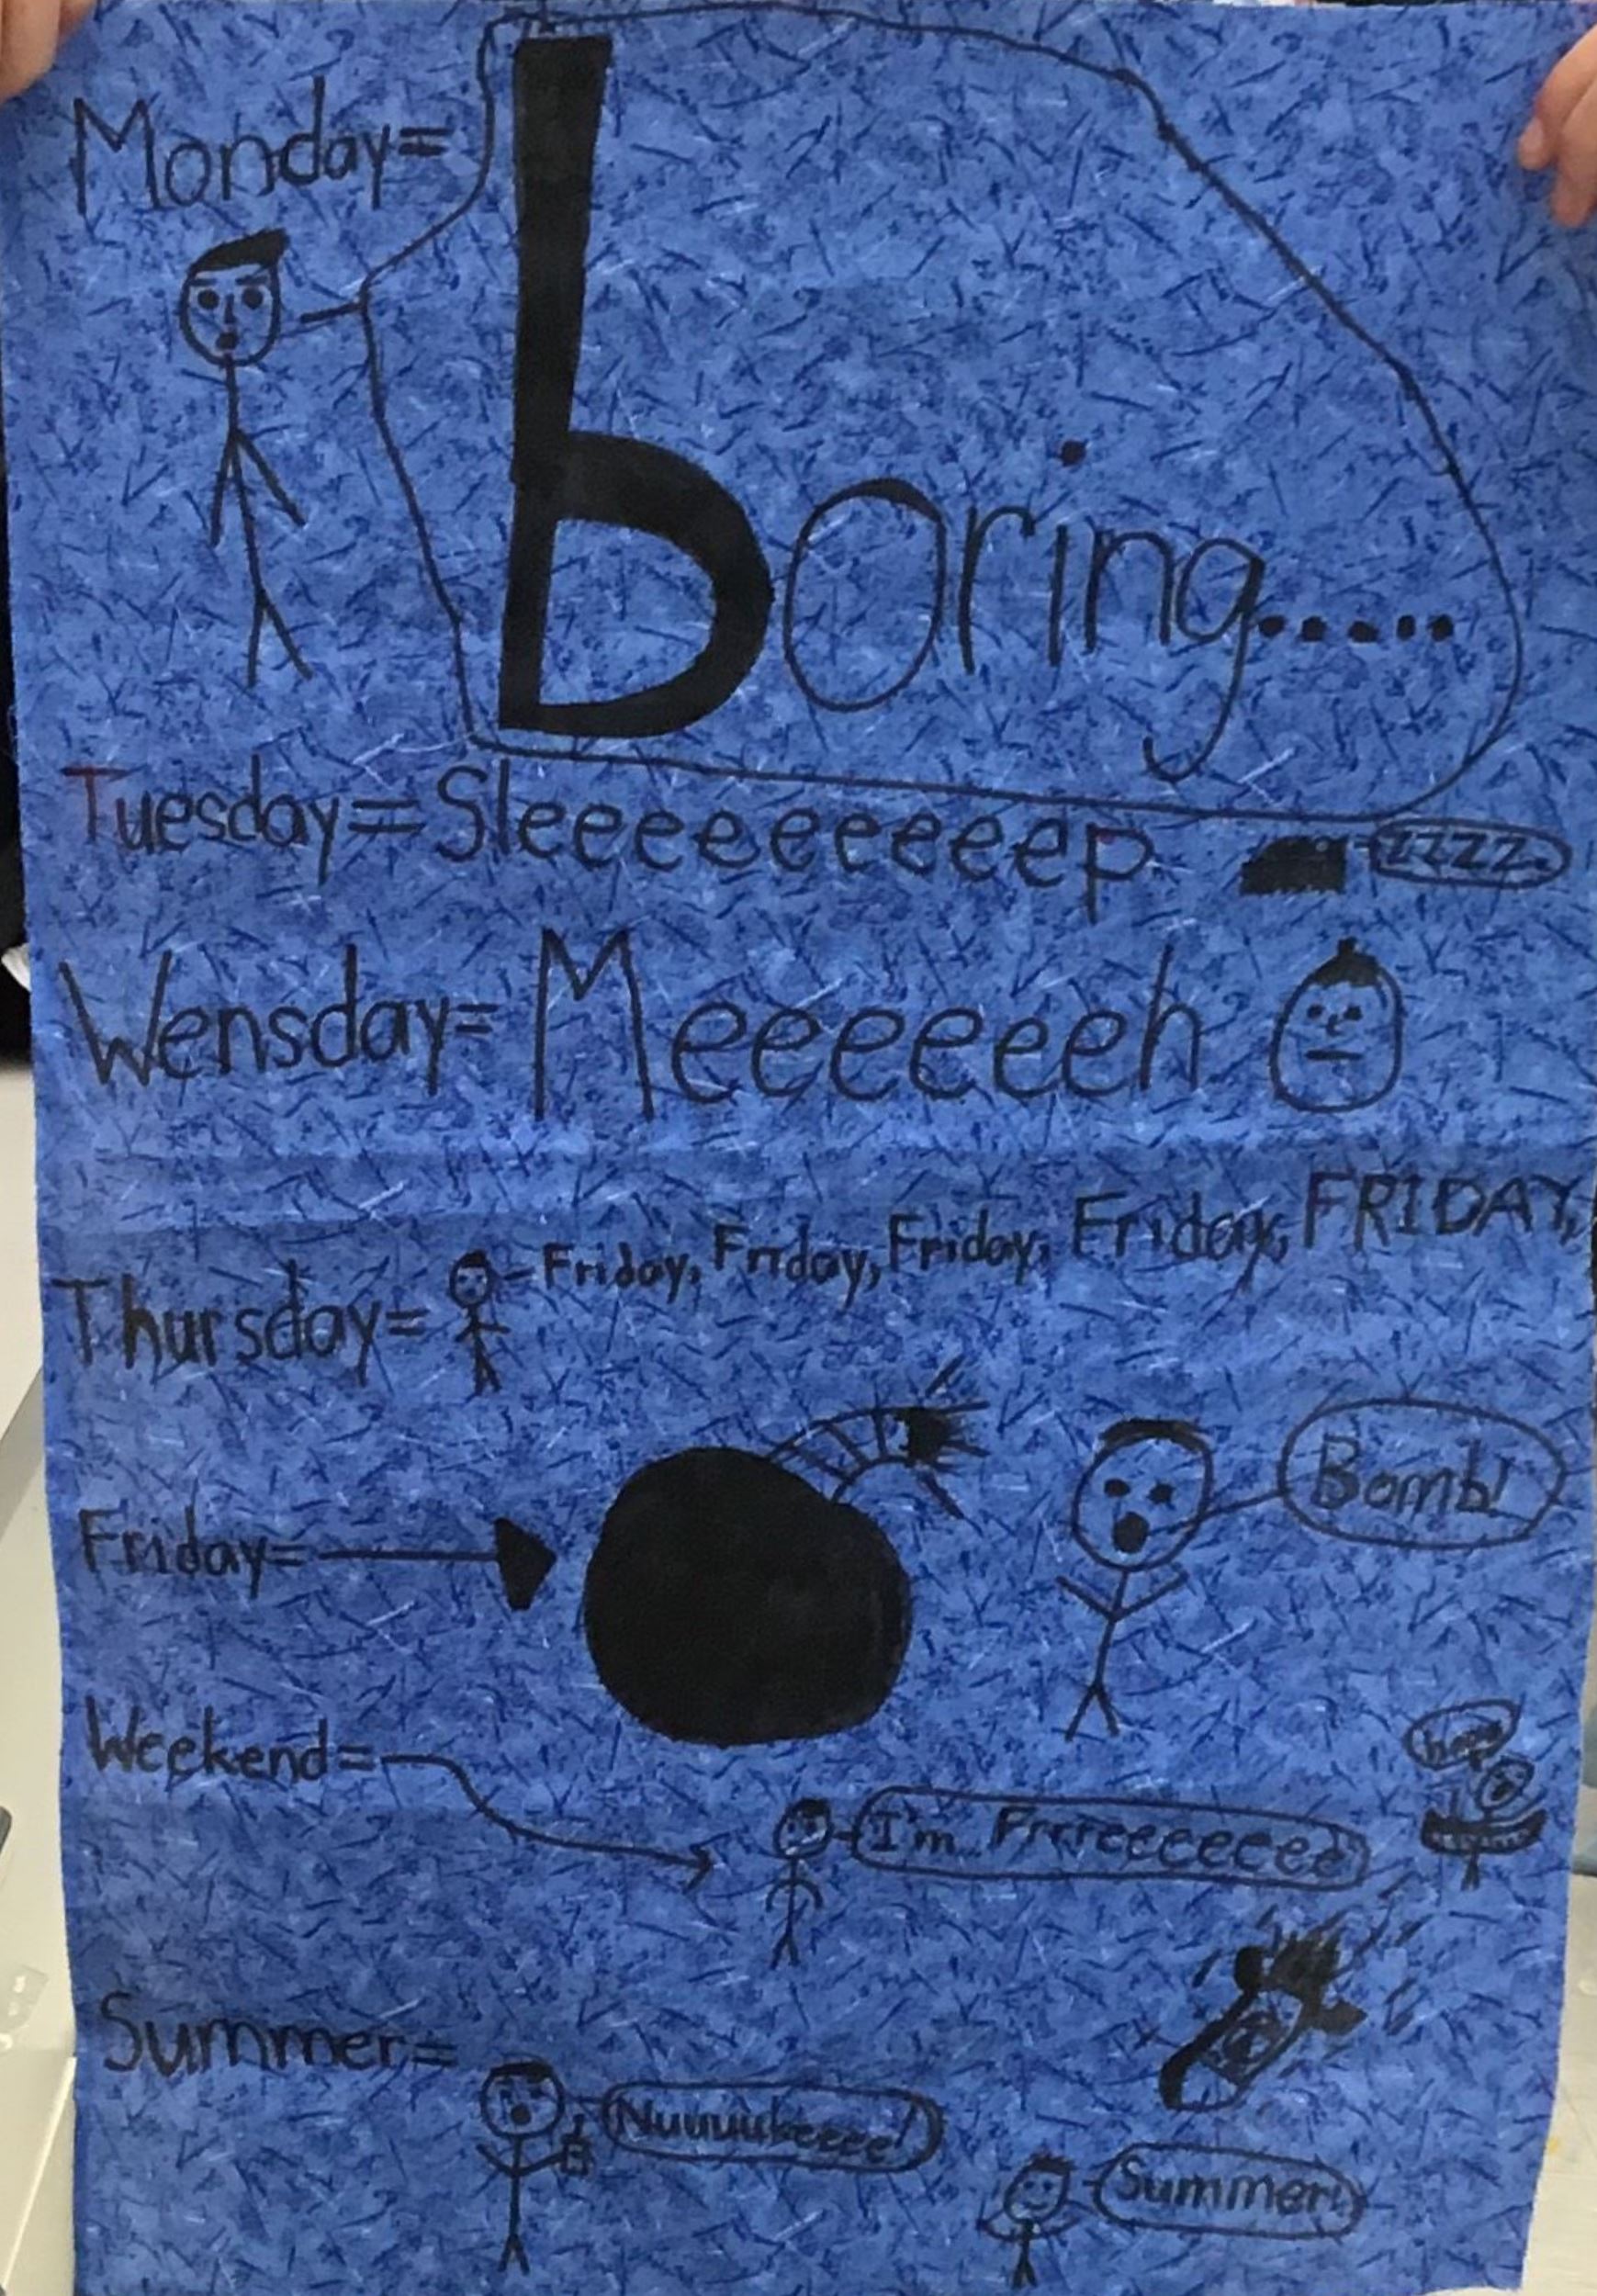 Monday=
boring.....
Tuesday= Sleeeeeeeeeep
zzzz.
Wensday= Meeeeeeh
Friday, Friday, Friday, Friday, FRIDAY,
Thursday=
Bomb!
Friday=
Weekend=
I'm Frrreeeeeee
Summer=
Nuuuukeeee!
Summer!